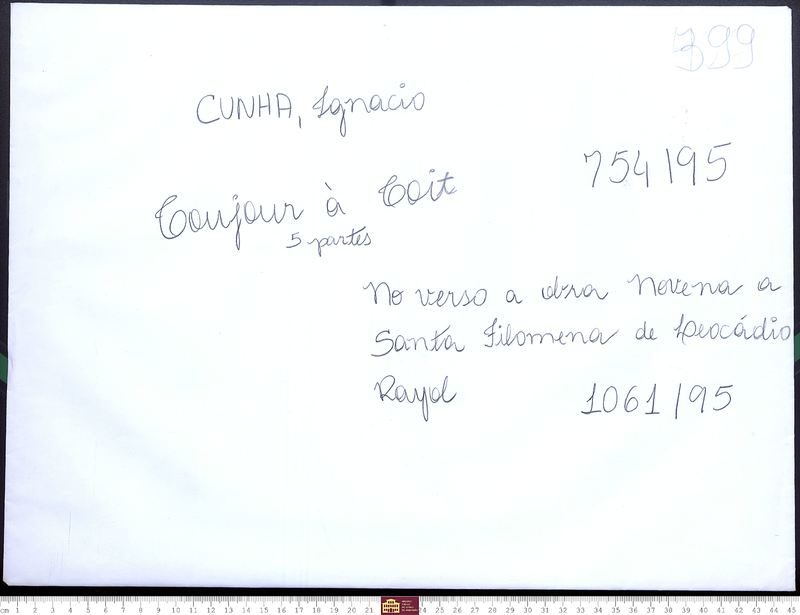 399
CUNHA, Ignacio
754/95
Toujour à Toit
5 partes
No verso a obra Novena a
Santa Filomena de Leocádio
Rayol
1061/95